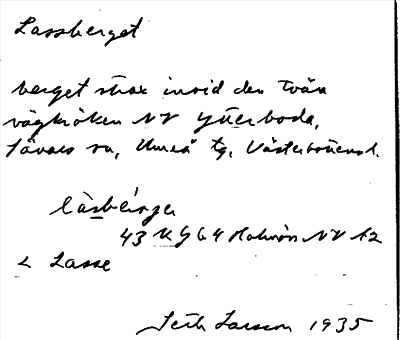 Lassberget
berget strax invid den tvära
vägkröken NV Ytterboda,
Sävars sn, Umeå tg, Västerbottens l.
låsbérge
43 K G 64 Holmön NV h2
< Lasse
Seth Larsson 1935